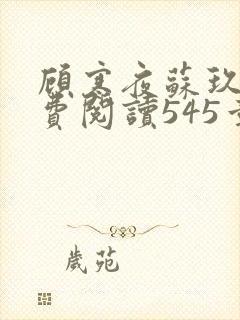 顧寒夜蘇玖
費閱讀545
歲苑